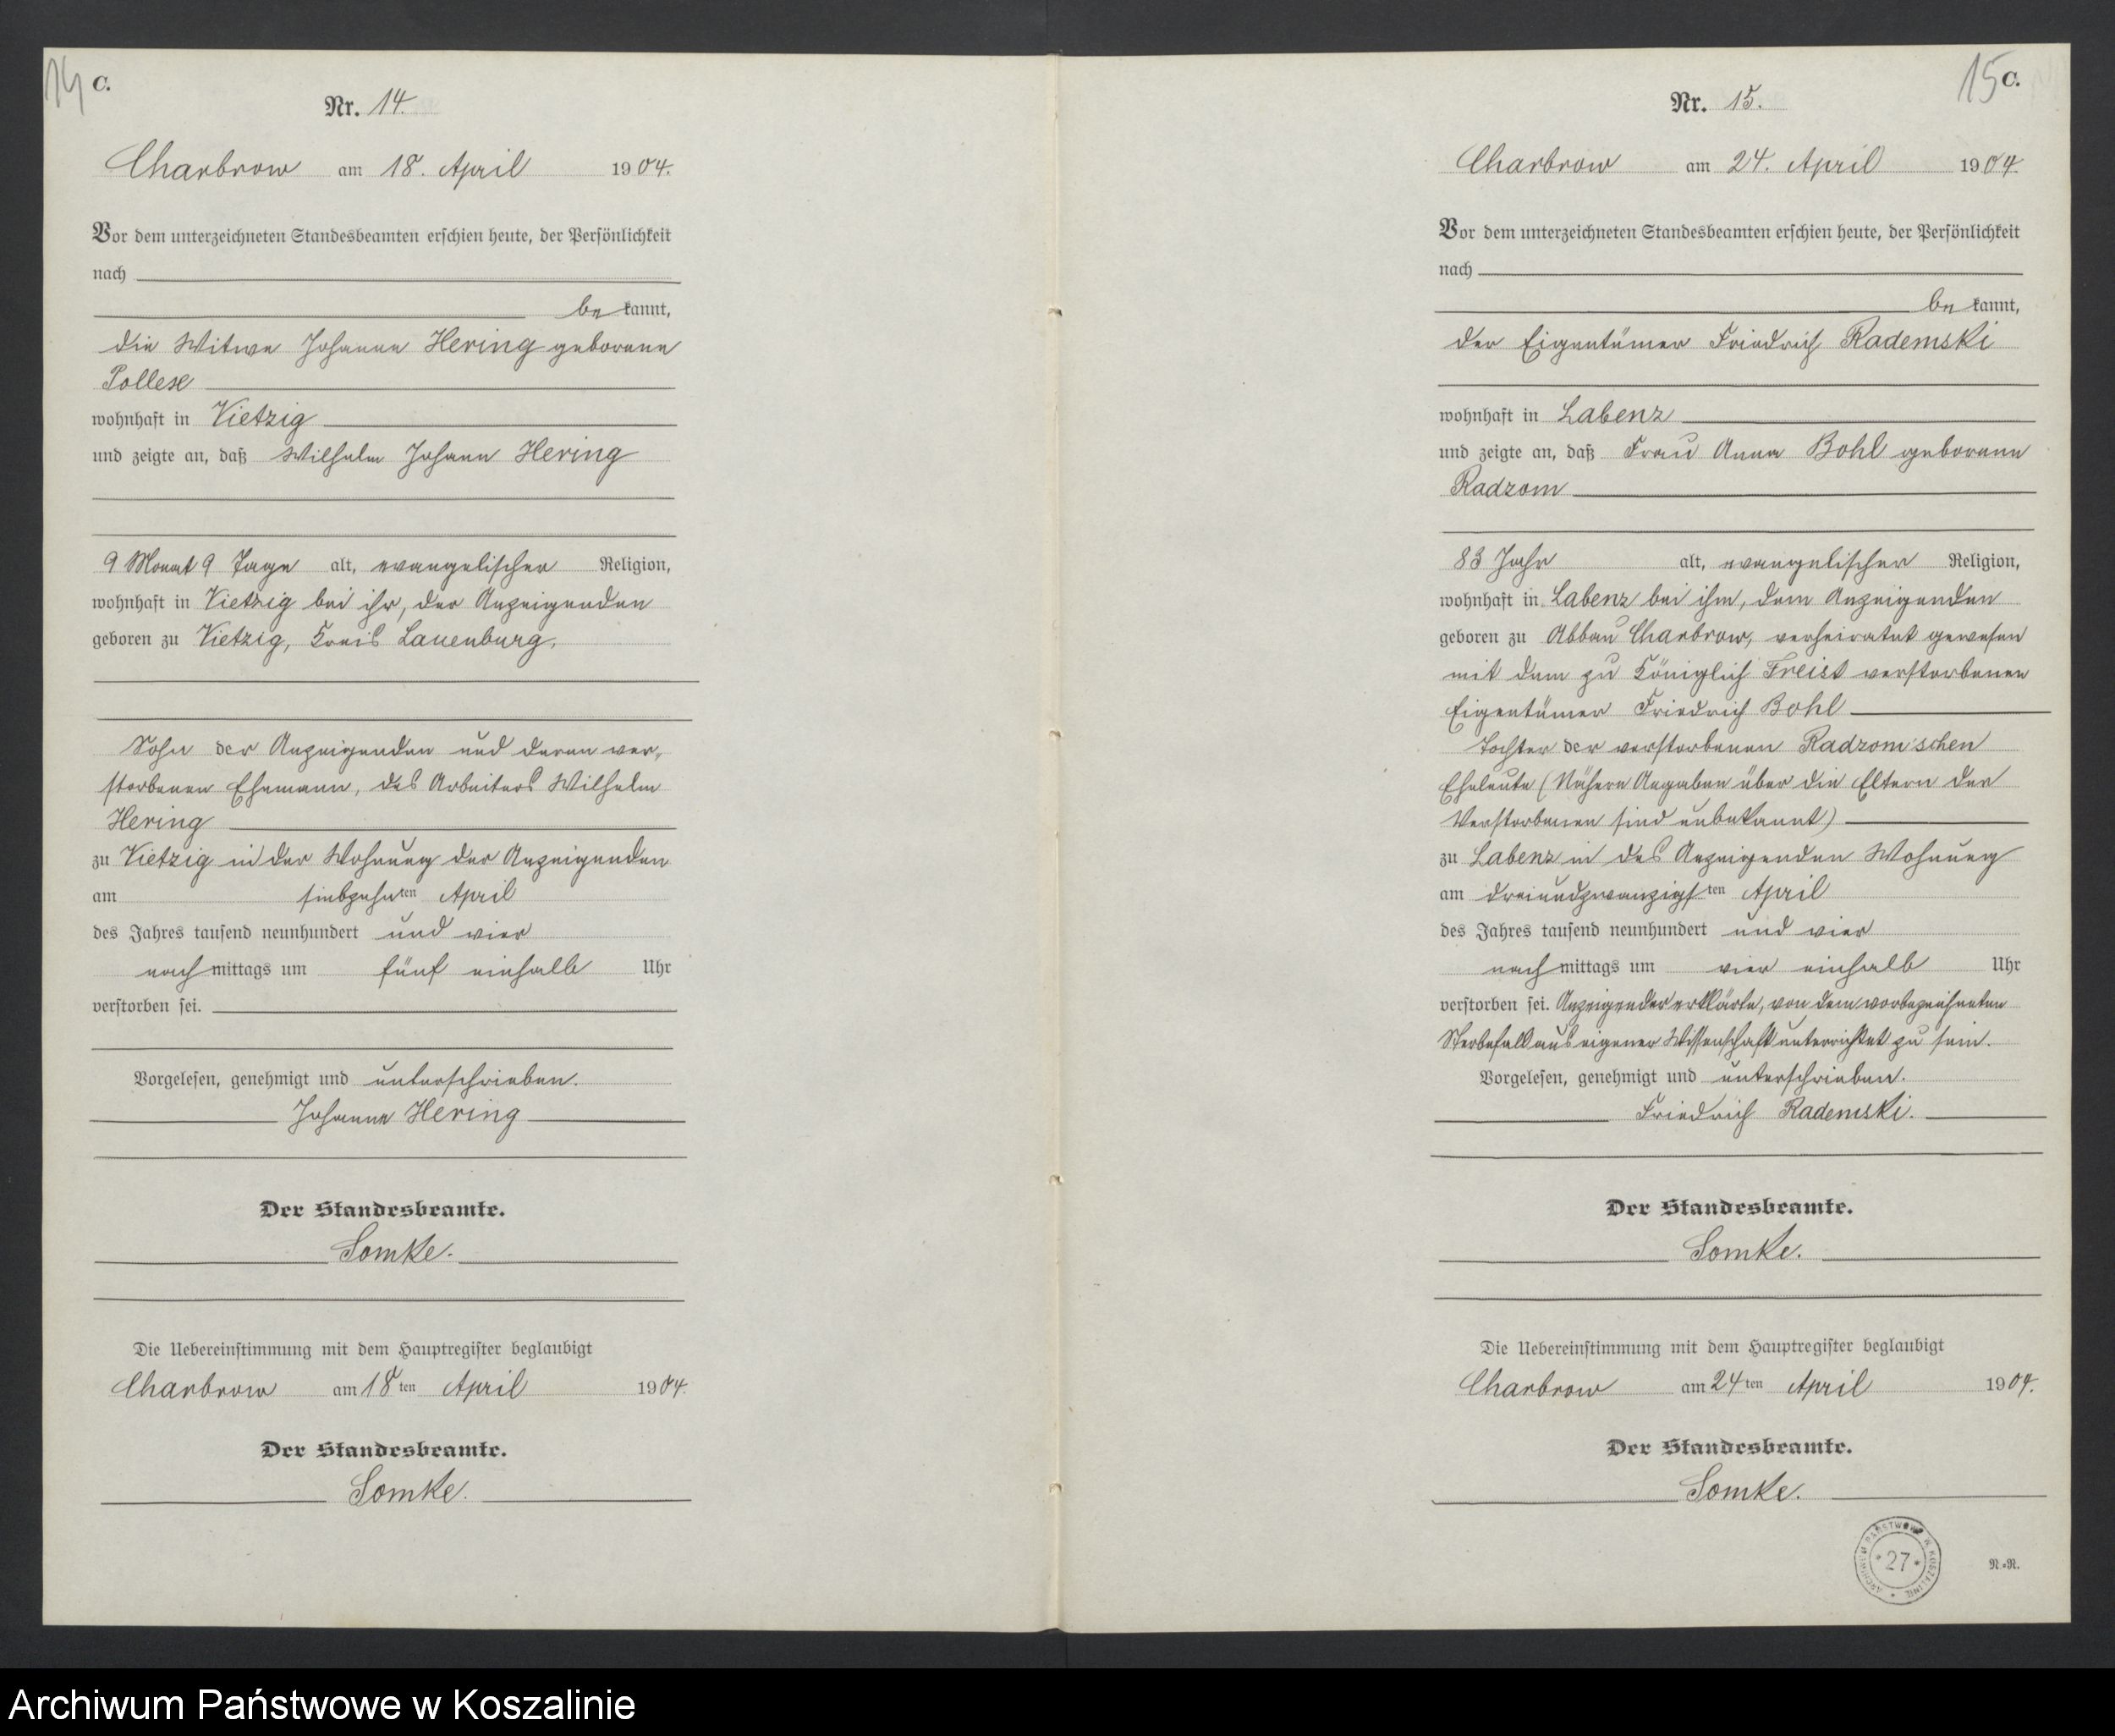 14
C.
Nr. 14.
Charbrow am 18. April 1904.
Vor dem unterzeichneten Standesbeamten erschien heute, der Persönlichkeit
nach
be kannt,
die Witwe Johanna Hering geborene
Pollex
wohnhaft in Vietzig
und zeigte an, daß Wilhelm Johann Hering
9 Monat 9 Tage alt, evangelischer Religion,
wohnhaft in Vietzig bei ihr, der Anzeigenden
geboren zu Vietzig, Kreis Lauenburg,
Sohn der Anzeigenden und deren ver-
storbenen Ehemann, des Arbeiters Wilhelm
Hering
zu Vietzig in der Wohnung der Anzeigenden
am siebzehnten April
des Jahres tausend neunhundert und vier
nach mittags um fünf einhalb Uhr
verstorben sei.
Vorgelesen, genehmigt und unterschrieben.
Johanna Hering
Der Standesbeamte.
Somke.
Die Uebereinstimmung mit dem Hauptregister beglaubigt
Charbrow am 18ten April 1904.
Der Standesbeamte.
Somke.
15
C.
Nr. 15.
Charbrow am 24. April 1904.
Vor dem unterzeichneten Standesbeamten erschien heute, der Persönlichkeit
nach
be kannt,
der Eigentümer Friedrich Rademski
wohnhaft in Labenz
und zeigte an, daß Frau Anna Bohl geborene
Radzom
83 Jahr alt, evangelischer Religion,
wohnhaft in Labenz bei ihm, dem Anzeigenden
geboren zu Abbau Charbrow, verheiratet gewesen
mit dem zu Königlich Freist verstorbenen
Eigentümer Friedrich Bohl
Tochter der verstorbenen Radzom'schen
Eheleute (Nähere Angaben über die Eltern der
Verstorbenen sind unbekannt)
zu Labenz in des Anzeigenden Wohnung
am dreiundzwanzigsten April
des Jahres tausend neunhundert und vier
nach mittags um vier einhalb Uhr
verstorben sei. Anzeigender erklärte, von dem vorbezeichneten
Sterbefall aus eigener Wissenschaft unterrichtet zu sein.
Vorgelesen, genehmigt und unterschrieben.
Friedrich Rademski.
Der Standesbeamte.
Somke.
Die Uebereinstimmung mit dem Hauptregister beglaubigt
Charbrow am 24ten April 1904.
Der Standesbeamte.
Somke.
ARCHIWUM PAŃSTWOWE W KOSZALINIE
* 27 *
N.=N.
Archiwum Państwowe w Koszalinie